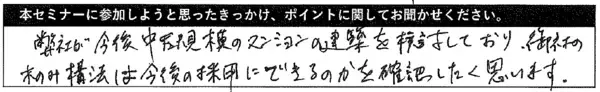 本セミナーに参加しようと思ったきっかけ、ポイントに関してお聞かせください。
弊社が今後中大規模のマンションの建築を検討しており、御社の
木のみ構法は今後の採用にできるのかを確認したく思います。